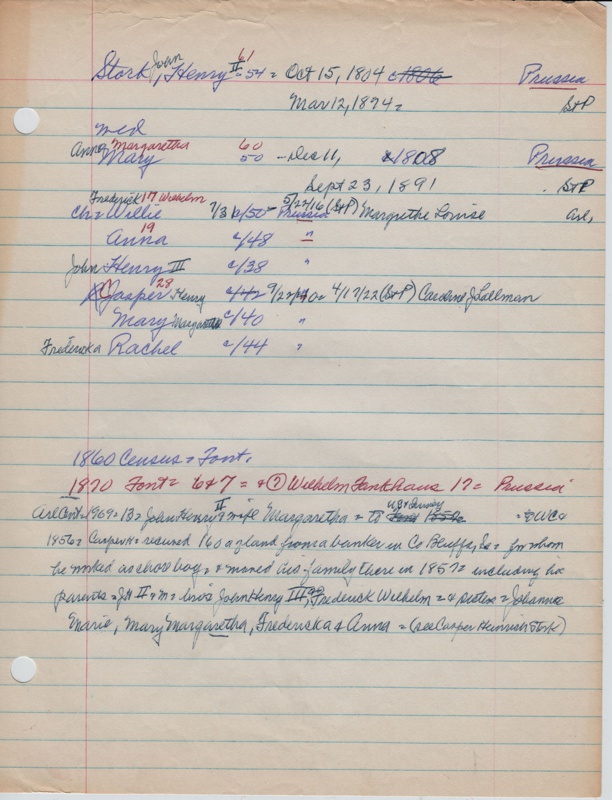 John 61
Stork, Henry II - 54 = Oct 15, 1804 c1806 Prussia
Mar 12, 1894 = S+P
med
Anna Margaretha 60
Mary 50 - Dec 11, 1808 Prussia
Sept 23, 1891 S+P
Frederick 17 Wilhelm 5/22/16 (S+P)
Ch = Willie 7/3 c/50 - Prussia Margrethe Louise Arl,
19
Anna c/48 "
John Henry III c/38 "
28
Casper Henry c/42 9/22/40 = 4/17/22 (S+P) Caroline J Lallman
Mary Margaretha c/40 "
Fredericka Rachel c/44 "
1860 Census = Font.
1870 Font = 6 & 7 = & ⑦ Wilhelm Fankhaus 17 = Prussia
II US & Germany
Arl Cent = 1969 = 13 = John Henry & wife Margaretha = to 1856 = & WC &
1856 = Casper H = received 160 a land from a banker in Co Bluffs, Ia = for whom
he worked as chore boy = & moved his family there in 1857 = including his
parents = JH II & M = bros John Henry III & Frederick Wilhelm = & sisters = Johanna
Marie, Mary Margaretha, Fredericka & Anna = (see Casper Heinrich Stork)